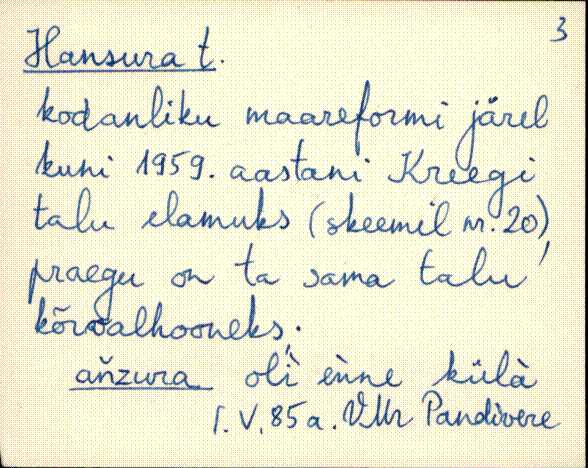 3
Hansura t.
kodanliku maareformi järel
kuni 1959. aastani Kreegi
talu elamuks (skeemil nr. 20),
praegu on ta sama talu
kõrvalhooneks.
ańzura oĺì ènne külà
I. V. 85 a. VMr Pandivere